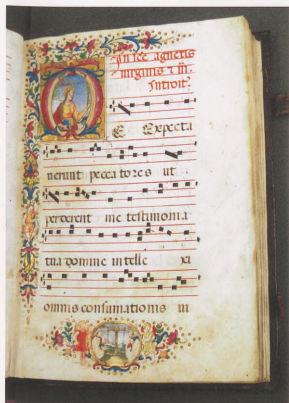 In sce agnetis
uirginis t m.
Introit.
M E Expecta
uerunt peccatores ut
perderent me testimonia
tua domine intelle xi
omnis consumationis ui